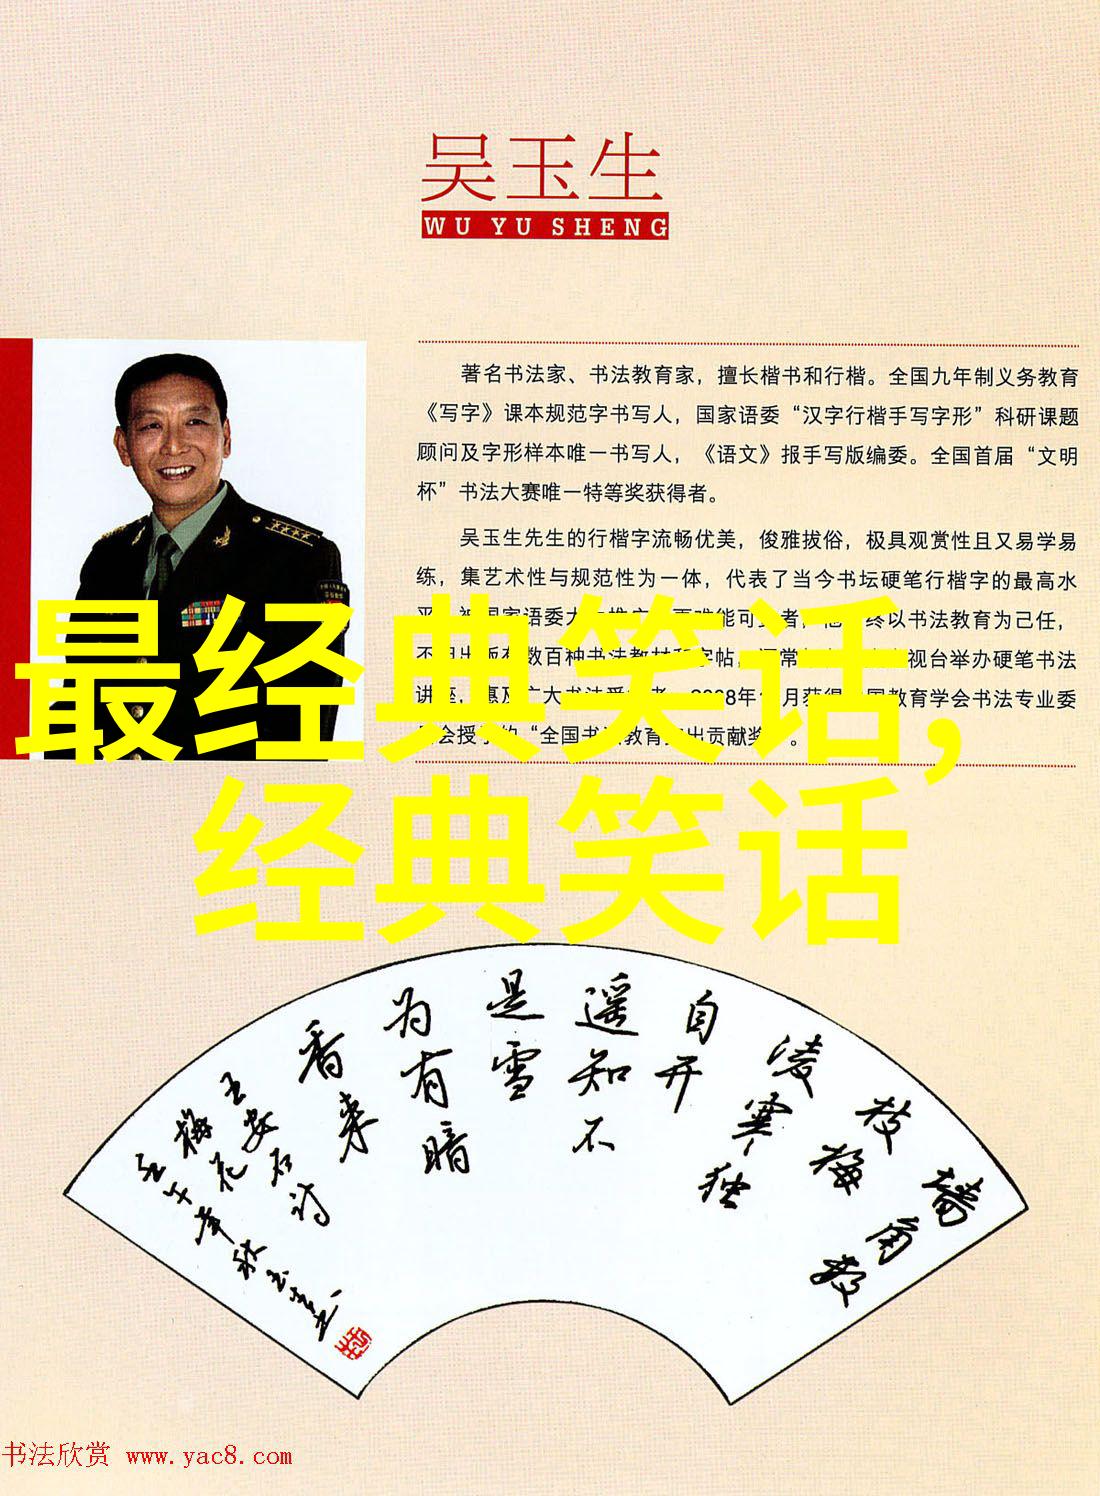 吴玉生
WU YU SHENG
著名书法家、书法教育家，擅长楷书和行楷。全国九年制义务教育
《写字》课本规范字书写人，国家语委“汉字行楷手写字形”科研课题
顾问及字形样本唯一书写人，《语文》报手写版编委。全国首届“文明
杯”书法大赛唯一特等奖获得者。
吴玉生先生的行楷字流畅优美，俊雅拔俗，极具观赏性且又易学易
练，集艺术性与规范性为一体，代表了当今书坛硬笔行楷字的最高水
语委 能可 者， 终以书法教育为己任，
数百种书法教材 字帖， 视台举办硬笔书法
讲座， 广大书法 年 月获 教育学会书法专业委
会授予的“全国书法教育 出贡献奖”。
最经典笑话，
经典笑话
墙角数
枝梅
凌寒独
自开
遥知不
是雪
为有暗
香来
王安石诗
梅花
壬午年秋玉生书
书法欣赏 www.yac8.com